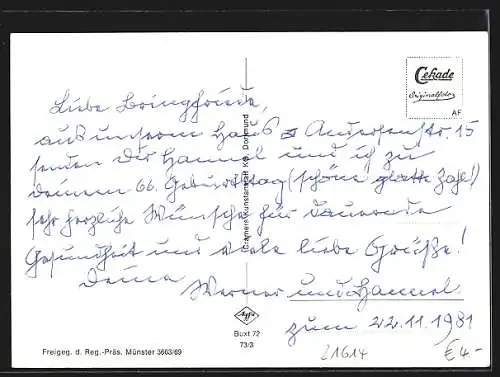 Cekade
Originalfoto
AF
Liebe Bringfriede,
aus unserem Haus Andersenstr. 15
senden Dir Hannel und ich zu
Deinem 66. Geburtstag (schöne glatte Zahl!)
sehr herzliche Wünsche für dauernde
Gesundheit und viele liebe Grüße!
Deine
Werner und Hannel.
zum 22.11.1981
Cramers Kunstanstalt KG, Dortmund
Agfa
Buxt 72
73/3
Freigeg. d. Reg.-Präs. Münster 3663/69
21614
€ 4.-